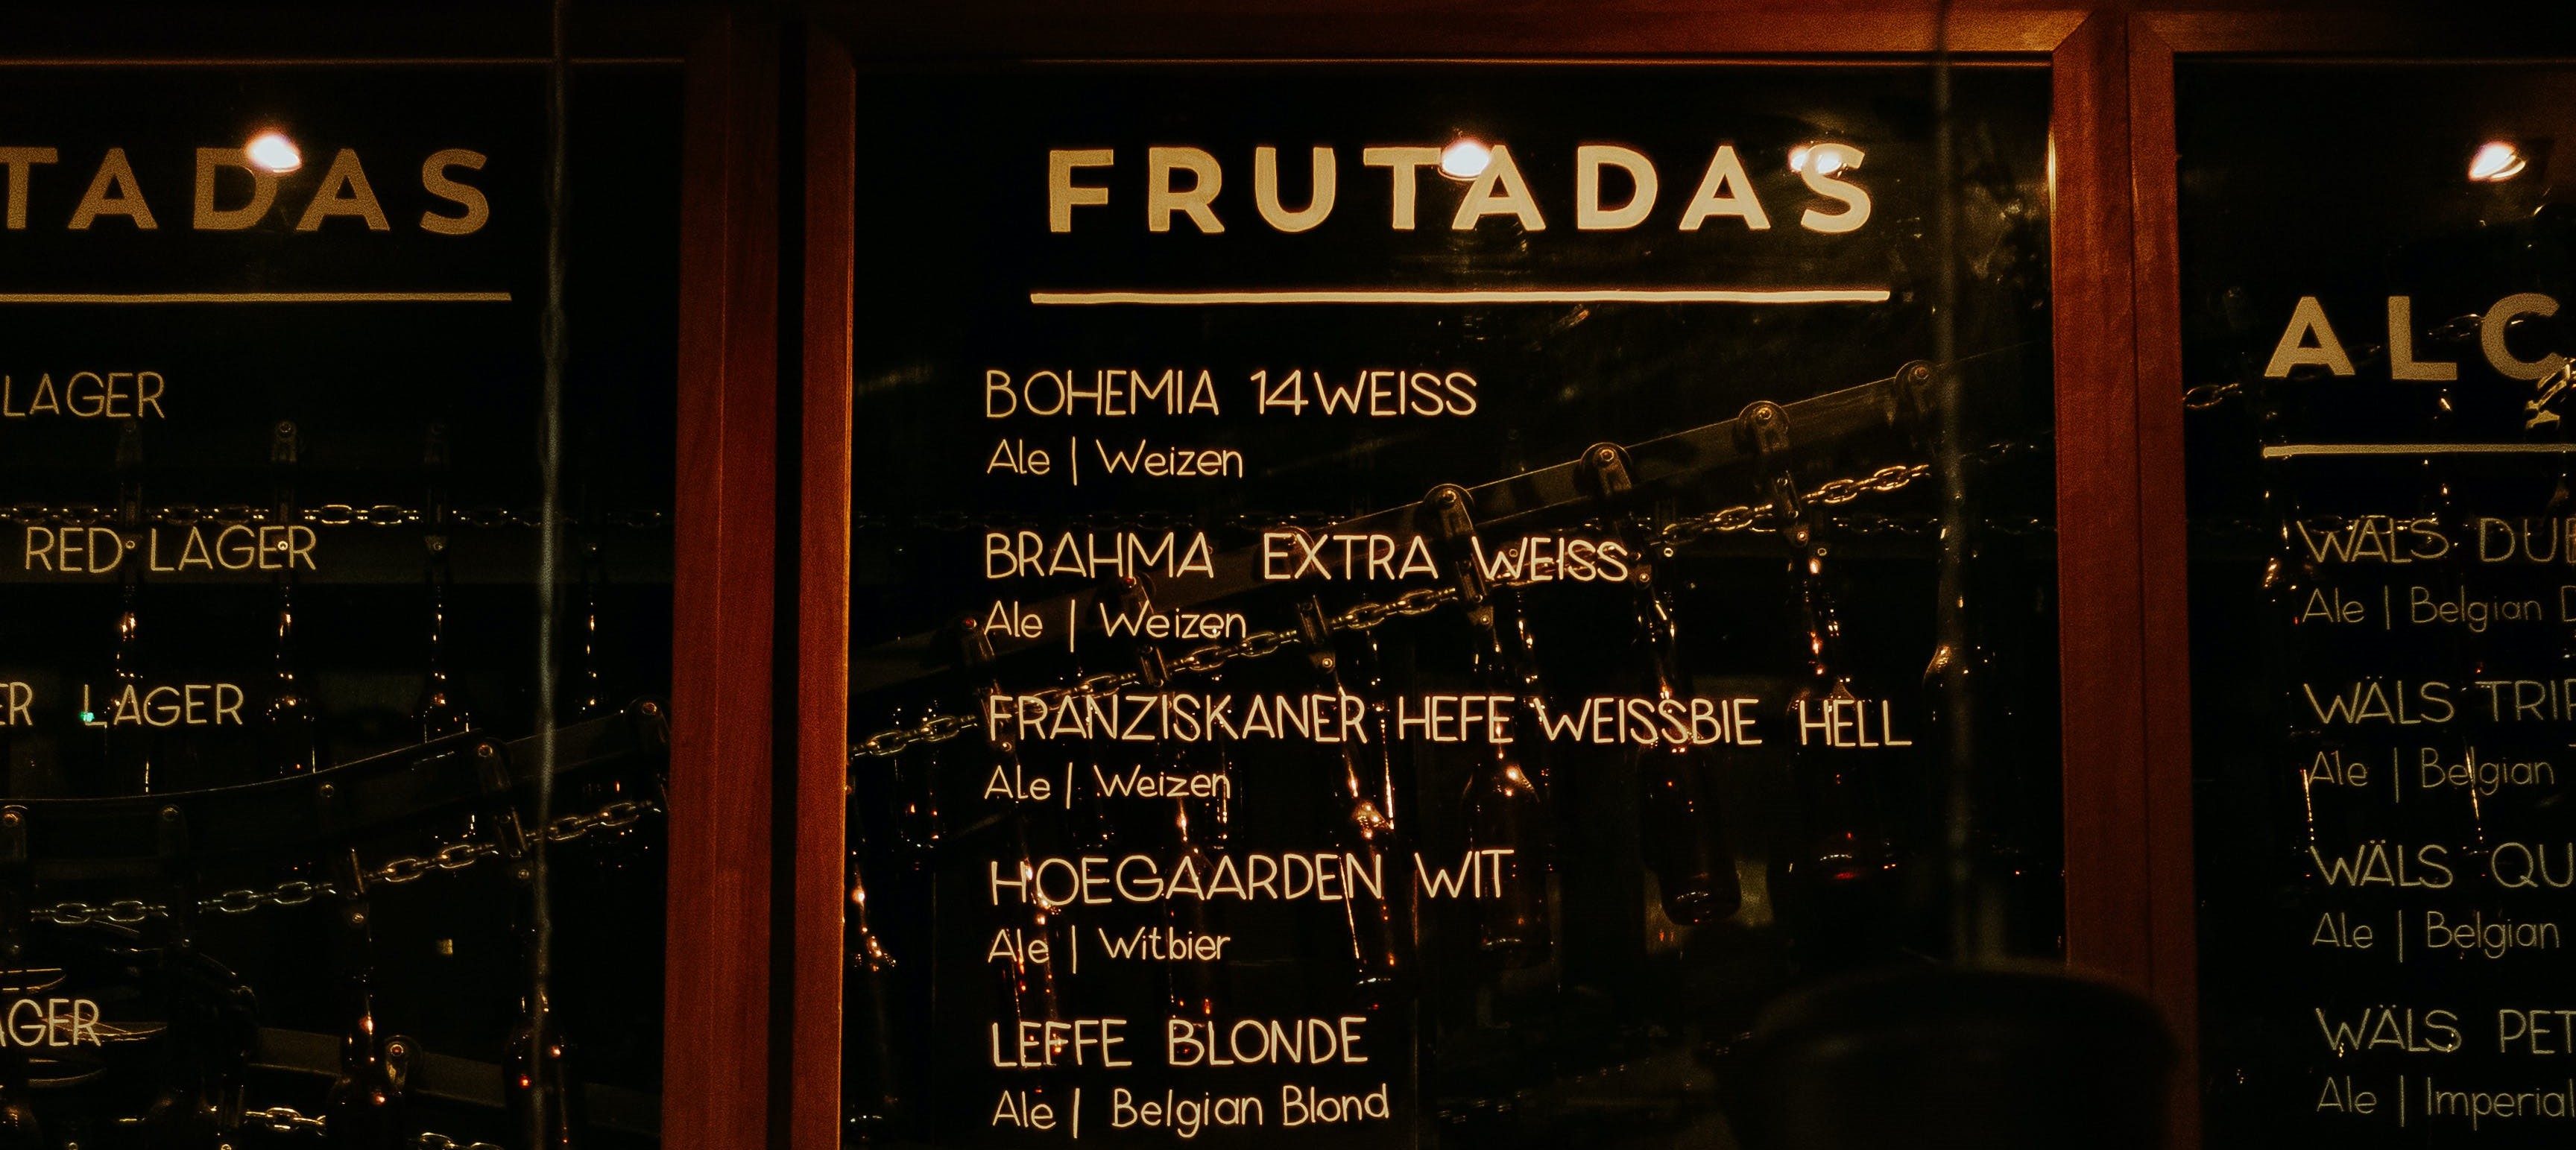 TADAS
LAGER
RED LAGER
ER LAGER
AGER
FRUTADAS
BOHEMIA 14WEISS
Ale | Weizen
BRAHMA EXTRA WEISS
Ale | Weizen
FRANZISKANER HEFE WEISSBIE HELL
Ale | Weizen
HOEGAARDEN WIT
Ale | Witbier
LEFFE BLONDE
Ale | Belgian Blond
ALC
WÄLS DUB
Ale | Belgian D
WÄLS TRIP
Ale | Belgian
WÄLS QU
Ale | Belgian
WÄLS PET
Ale | Imperial